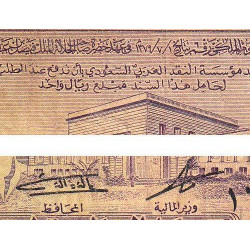 الملكي رقم تاريخ ١ / ٧ / ١٣٧٩ في عهد حضرة صاحب الجلالة الملك
مؤسسة النقد العربي السعودي بأن تدفع عند الطلب
لحامل هذا السند مبلغ ريال واحد
وزير المالية
المحافظ